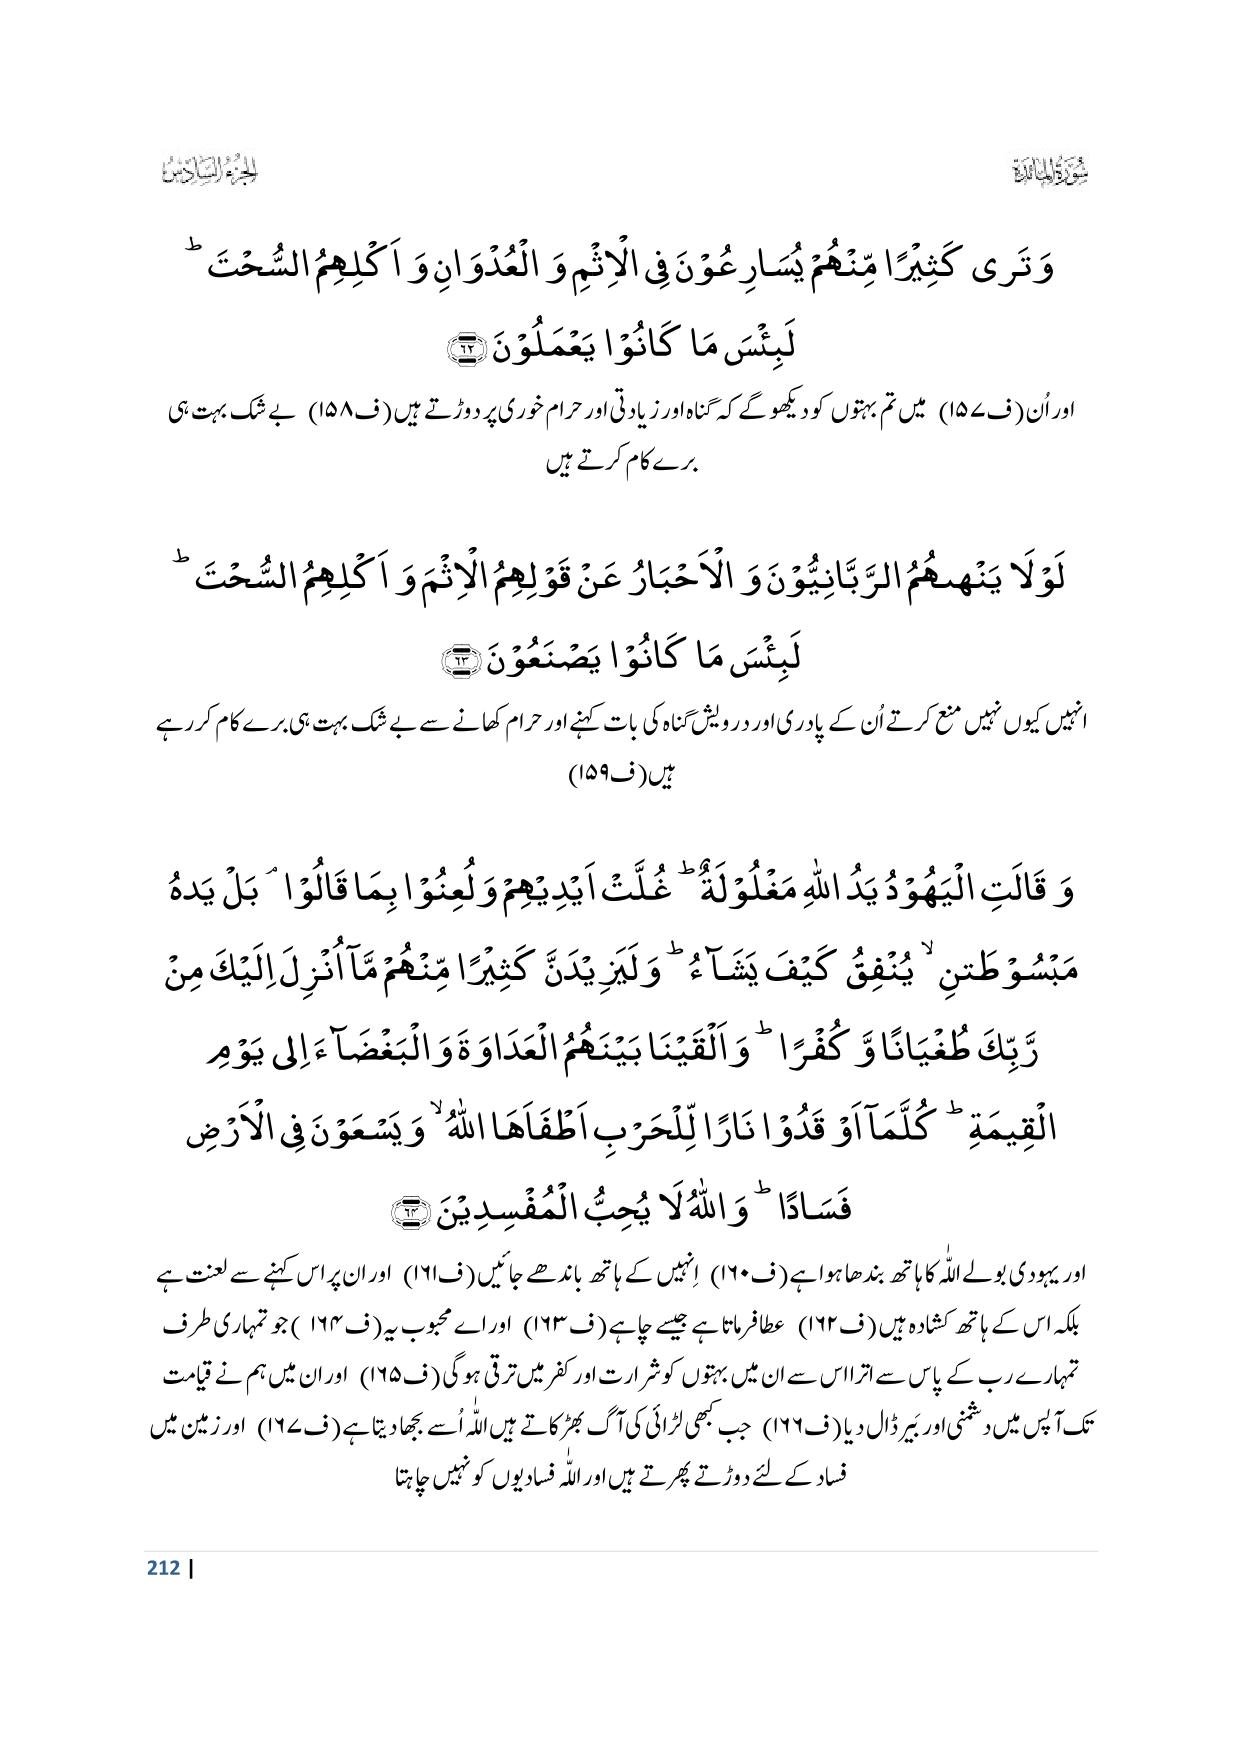 سُوْرَةُ الْمَائِدَة
الجزءُ السَّادِسُ
وَ تَرٰی كَثِیْرًا مِّنْهُمْ یُسَارِعُوْنَ فِی الْاِثْمِ وَ الْعُدْوَانِ وَ اَكْلِهِمُ السُّحْتَ ؕ
لَبِئْسَ مَا كَانُوْا یَعْمَلُوْنَ ﴿۶۲﴾
اور اُن (ف۱۵۷) میں تم بہتوں کو دیکھو گے کہ گناہ اور زیادتی اور حرام خوری پر دوڑتے ہیں (ف۱۵۸) بے شک بہت ہی
برے کام کرتے ہیں
لَوْ لَا یَنْهٰىهُمُ الرَّبَّانِیُّوْنَ وَ الْاَحْبَارُ عَنْ قَوْلِهِمُ الْاِثْمَ وَ اَكْلِهِمُ السُّحْتَ ؕ
لَبِئْسَ مَا كَانُوْا یَصْنَعُوْنَ ﴿۶۳﴾
انہیں کیوں نہیں منع کرتے اُن کے پادری اور درویش گناہ کی بات کہنے اور حرام کھانے سے بے شک بہت ہی برے کام کر رہے
ہیں (ف۱۵۹)
وَ قَالَتِ الْیَهُوْدُ یَدُ اللّٰهِ مَغْلُوْلَةٌ ؕ غُلَّتْ اَیْدِیْهِمْ وَ لُعِنُوْا بِمَا قَالُوْا ۘ بَلْ یَدٰهُ
مَبْسُوْطَتٰنِ ۙ یُنْفِقُ كَیْفَ یَشَآءُ ؕ وَ لَیَزِیْدَنَّ كَثِیْرًا مِّنْهُمْ مَّاۤ اُنْزِلَ اِلَیْكَ مِنْ
رَّبِّكَ طُغْیَانًا وَّ كُفْرًا ؕ وَ اَلْقَیْنَا بَیْنَهُمُ الْعَدَاوَةَ وَ الْبَغْضَآءَ اِلٰی یَوْمِ
الْقِیٰمَةِ ؕ كُلَّمَاۤ اَوْ قَدُوْا نَارًا لِّلْحَرْبِ اَطْفَاَهَا اللّٰهُ ۙ وَ یَسْعَوْنَ فِی الْاَرْضِ
فَسَادًا ؕ وَ اللّٰهُ لَا یُحِبُّ الْمُفْسِدِیْنَ ﴿۶۴﴾
اور یہودی بولے اللّٰہ کا ہاتھ بندھا ہوا ہے (ف۱۶۰) اِنہیں کے ہاتھ باندھے جائیں (ف۱۶۱) اور ان پر اس کہنے سے لعنت ہے
بلکہ اس کے ہاتھ کشادہ ہیں (ف۱۶۲) عطا فرماتا ہے جیسے چاہے (ف۱۶۳) اور اے محبوب یہ (ف۱۶۴) جو تمہاری طرف
تمہارے رب کے پاس سے اترا اس سے ان میں بہتوں کو شرارت اور کفر میں ترقی ہوگی (ف۱۶۵) اور ان میں ہم نے قیامت
تک آپس میں دشمنی اور بَیر ڈال دیا (ف۱۶۶) جب کبھی لڑائی کی آگ بھڑکاتے ہیں اللّٰہ اُسے بجھا دیتا ہے (ف۱۶۷) اور زمین میں
فساد کے لئے دوڑتے پھرتے ہیں اور اللّٰہ فسادیوں کو نہیں چاہتا
212 |